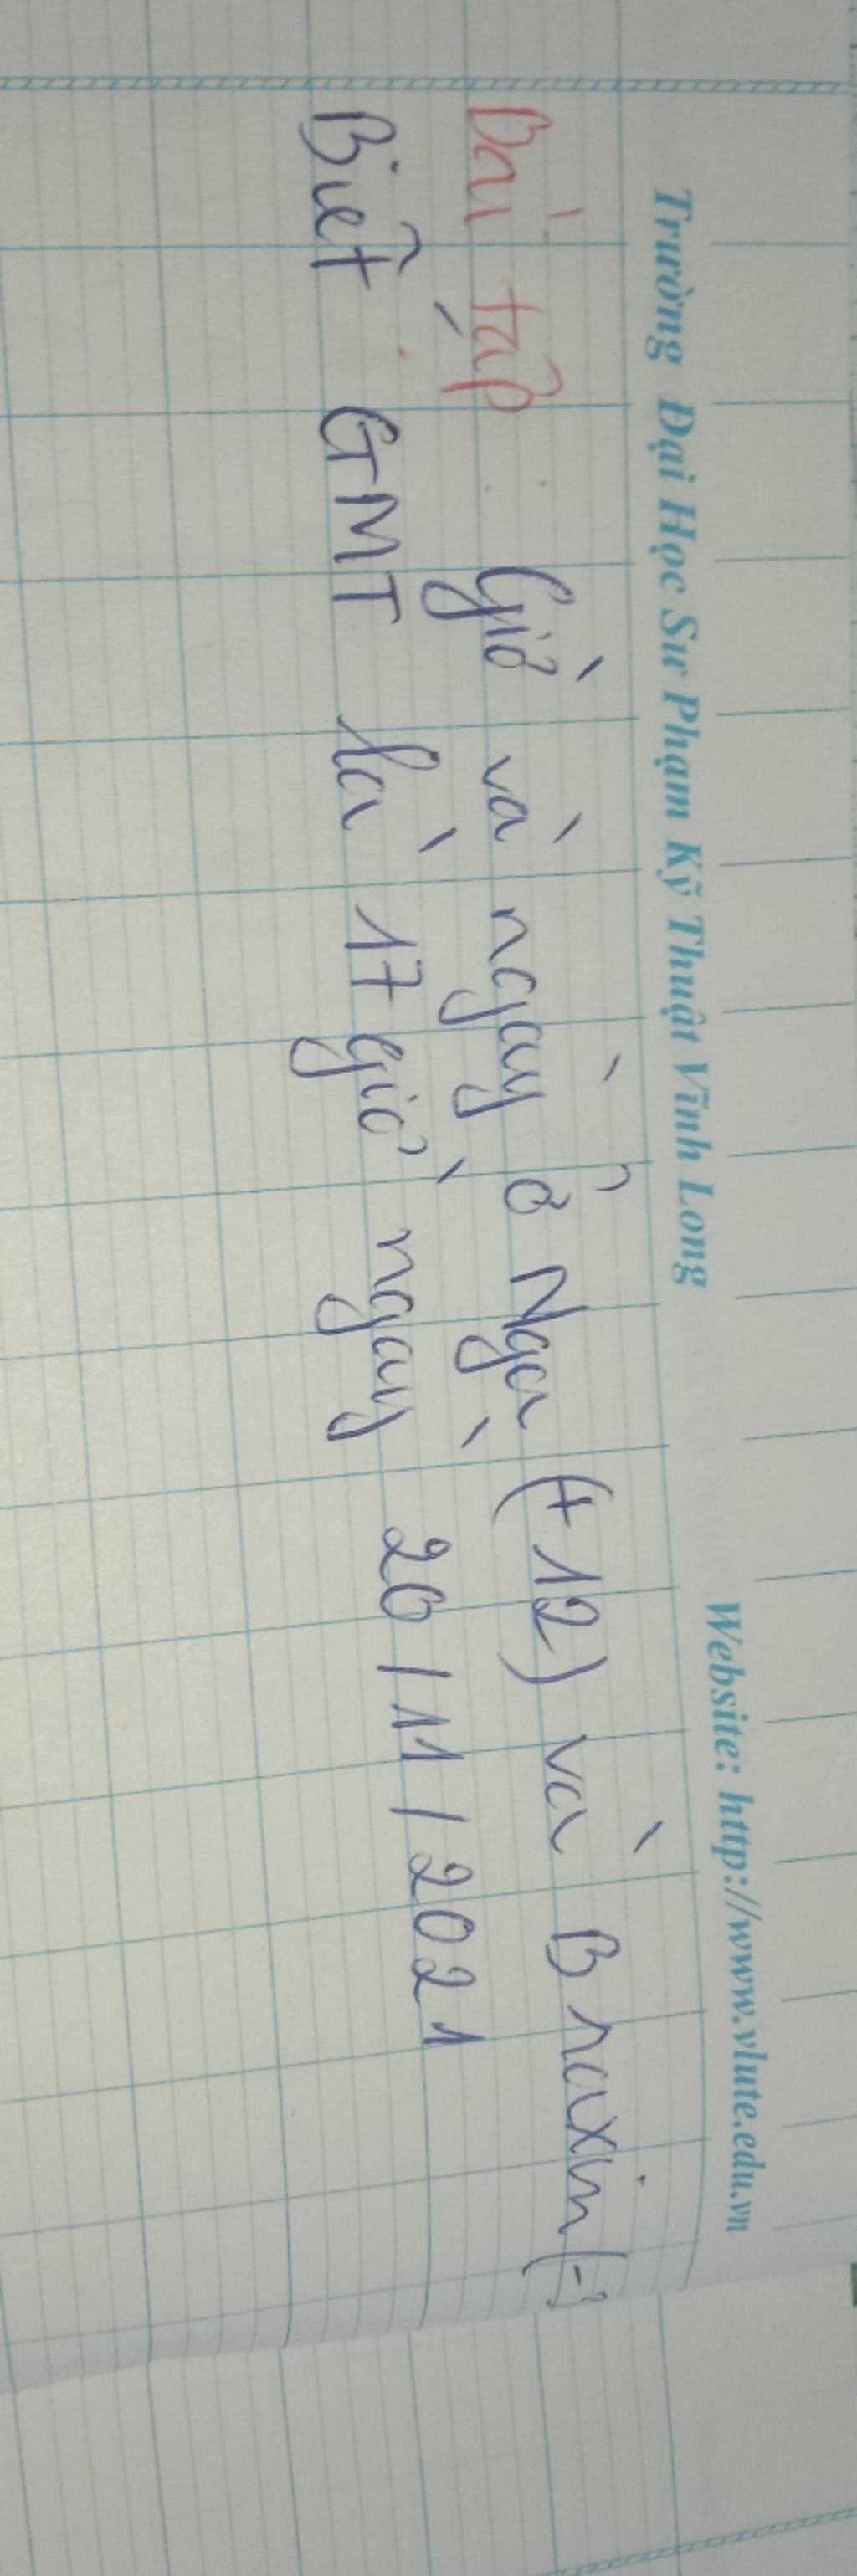 Trường Đại Học Sư Phạm Kỹ Thuật Vĩnh Long Website: http://www.vlute.edu.vn
Bài tập : Giờ và ngày ở Nga (+12) và Braxin (-
Biết GMT là 17 giờ ngày 20/11/2021